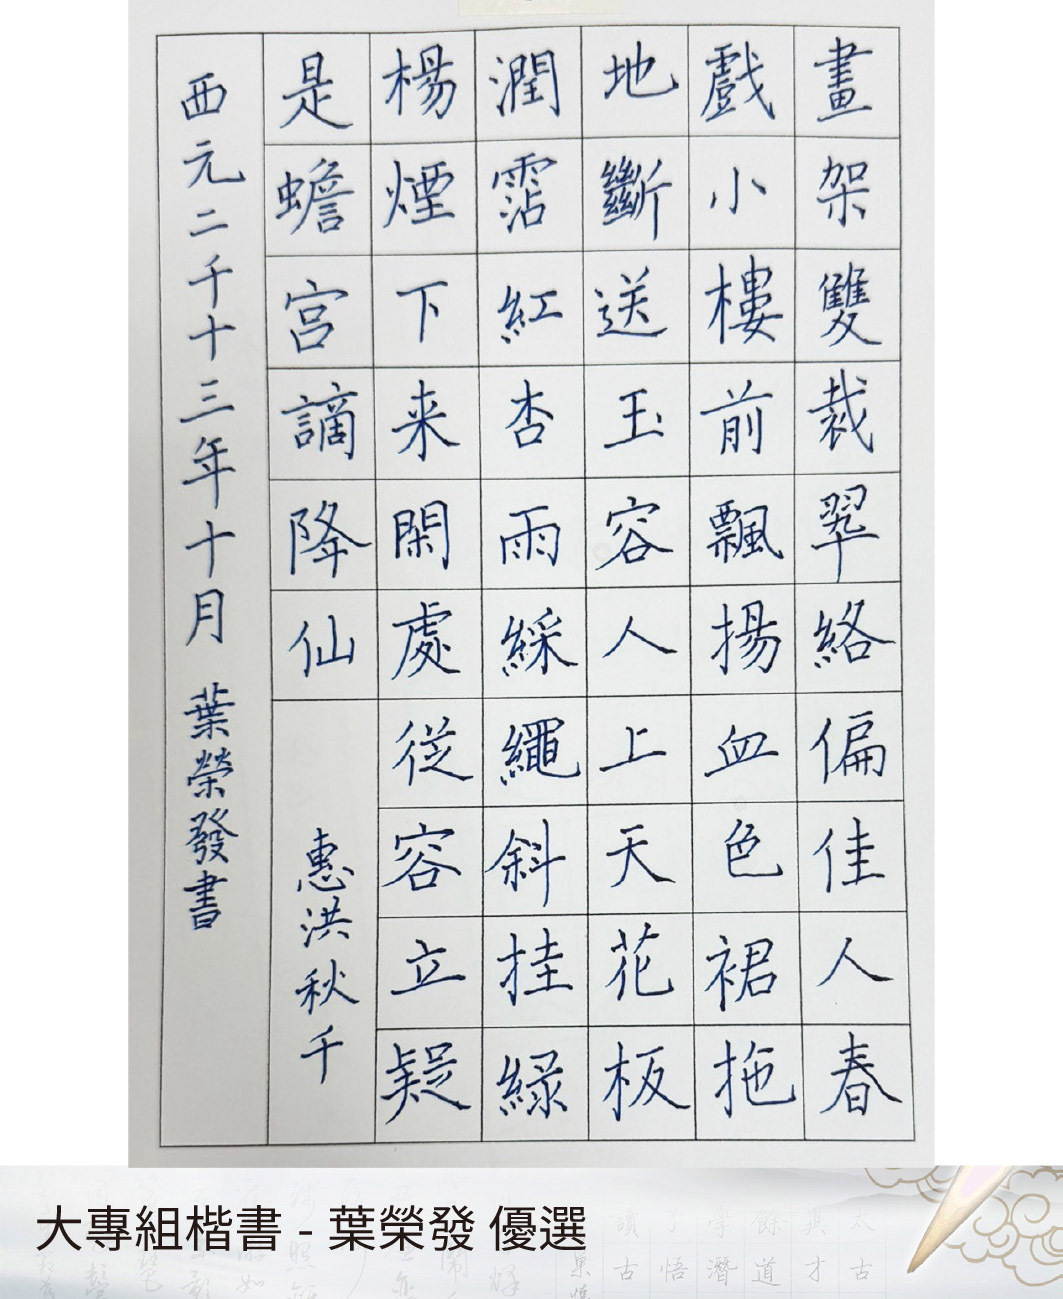 畫架雙裁翠絡偏佳人春
戲小樓前飄揚血色裙拖
地斷送玉容人上天花板
潤霑紅杏雨綵繩斜挂綠
楊煙下来閑處従容立疑
是蟾宮謫降仙
惠洪秋千
西元二千十三年十月 葉榮發書
大專組楷書 - 葉榮發 優選